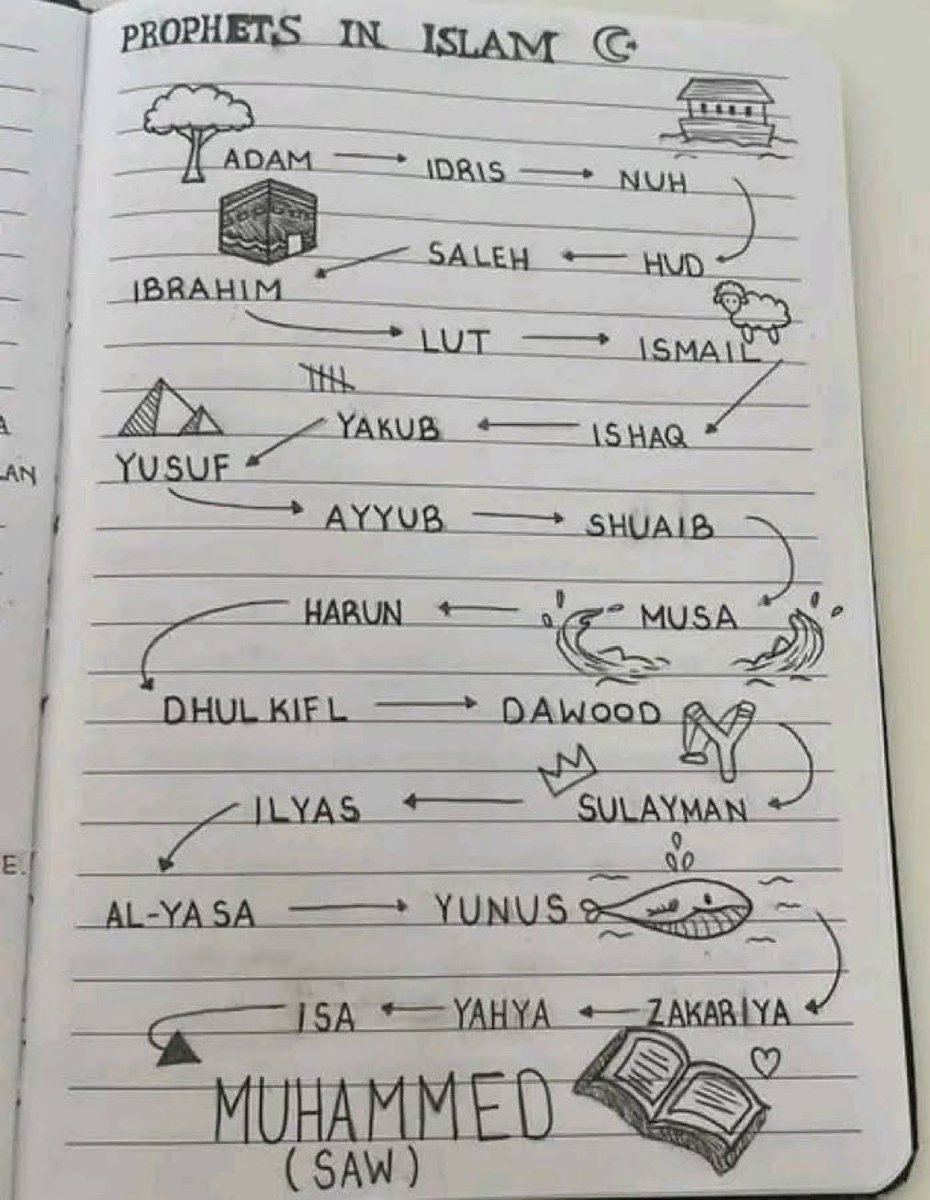 PROPHETS IN ISLAM
ADAM → IDRIS → NUH
SALEH ← HUD
IBRAHIM
LUT → ISMAIL
YAKUB ← ISHAQ
YUSUF
AYYUB → SHUAIB
HARUN ← MUSA
DHUL KIFL → DAWOOD
ILYAS ← SULAYMAN
AL-YASA → YUNUS
ISA ← YAHYA ← ZAKARIYA
MUHAMMED
(SAW)
A
LAN
E.